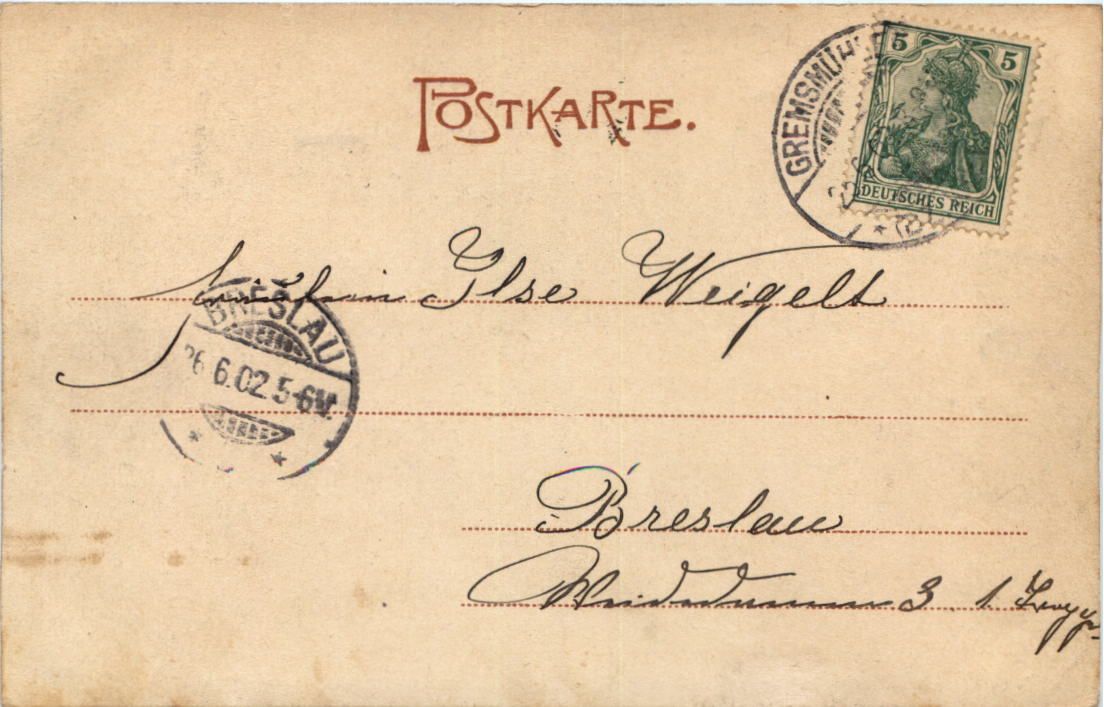 POSTKARTE.
GREMSMÜHLE
5 5
DEUTSCHES REICH
Fräulein Ilse Weigelt
BRESLAU
26 6.02. 5-6V.
Breslau
3 1.